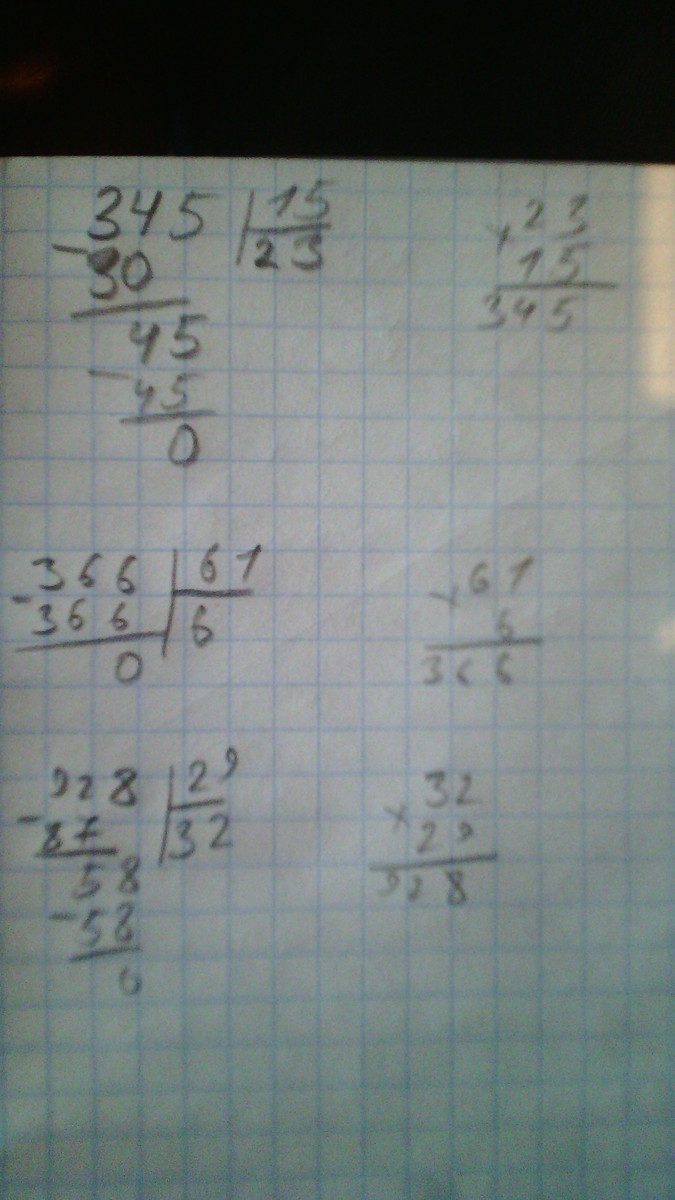 345 | 15 × 23
- 30 23 15
45 345
- 45
0
366 | 61 × 61
- 366 6 6
0 366
928 | 29 × 32
- 87 32 29
58 928
- 58
0